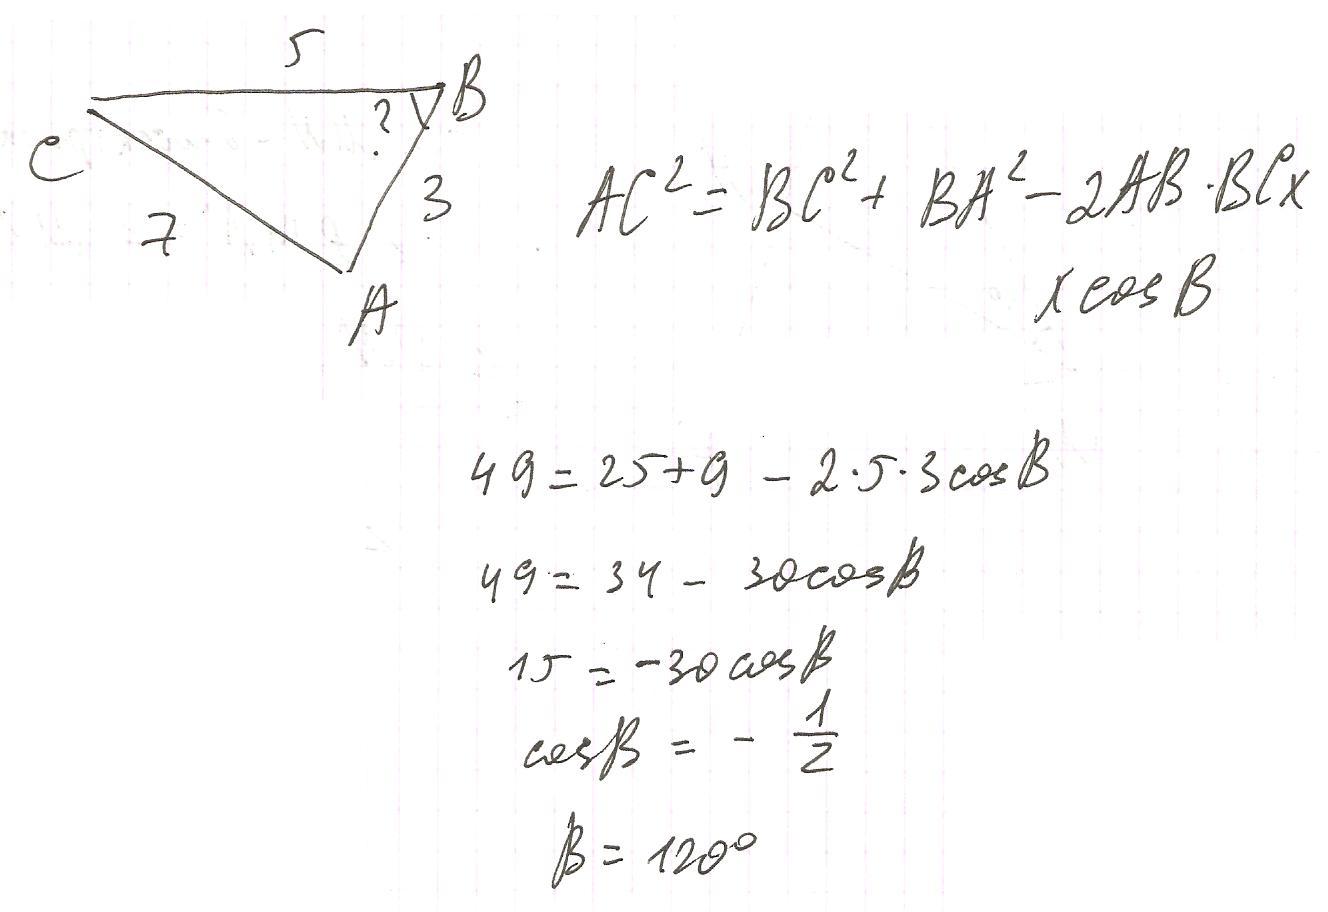 5
B
?
C
3
7
A
AC² = BC² + BA² – 2AB · BC x
x cos B
49 = 25 + 9 – 2·5·3 cos B
49 = 34 – 30 cos B
15 = –30 cos B
cos B = – 1/2
B = 120°